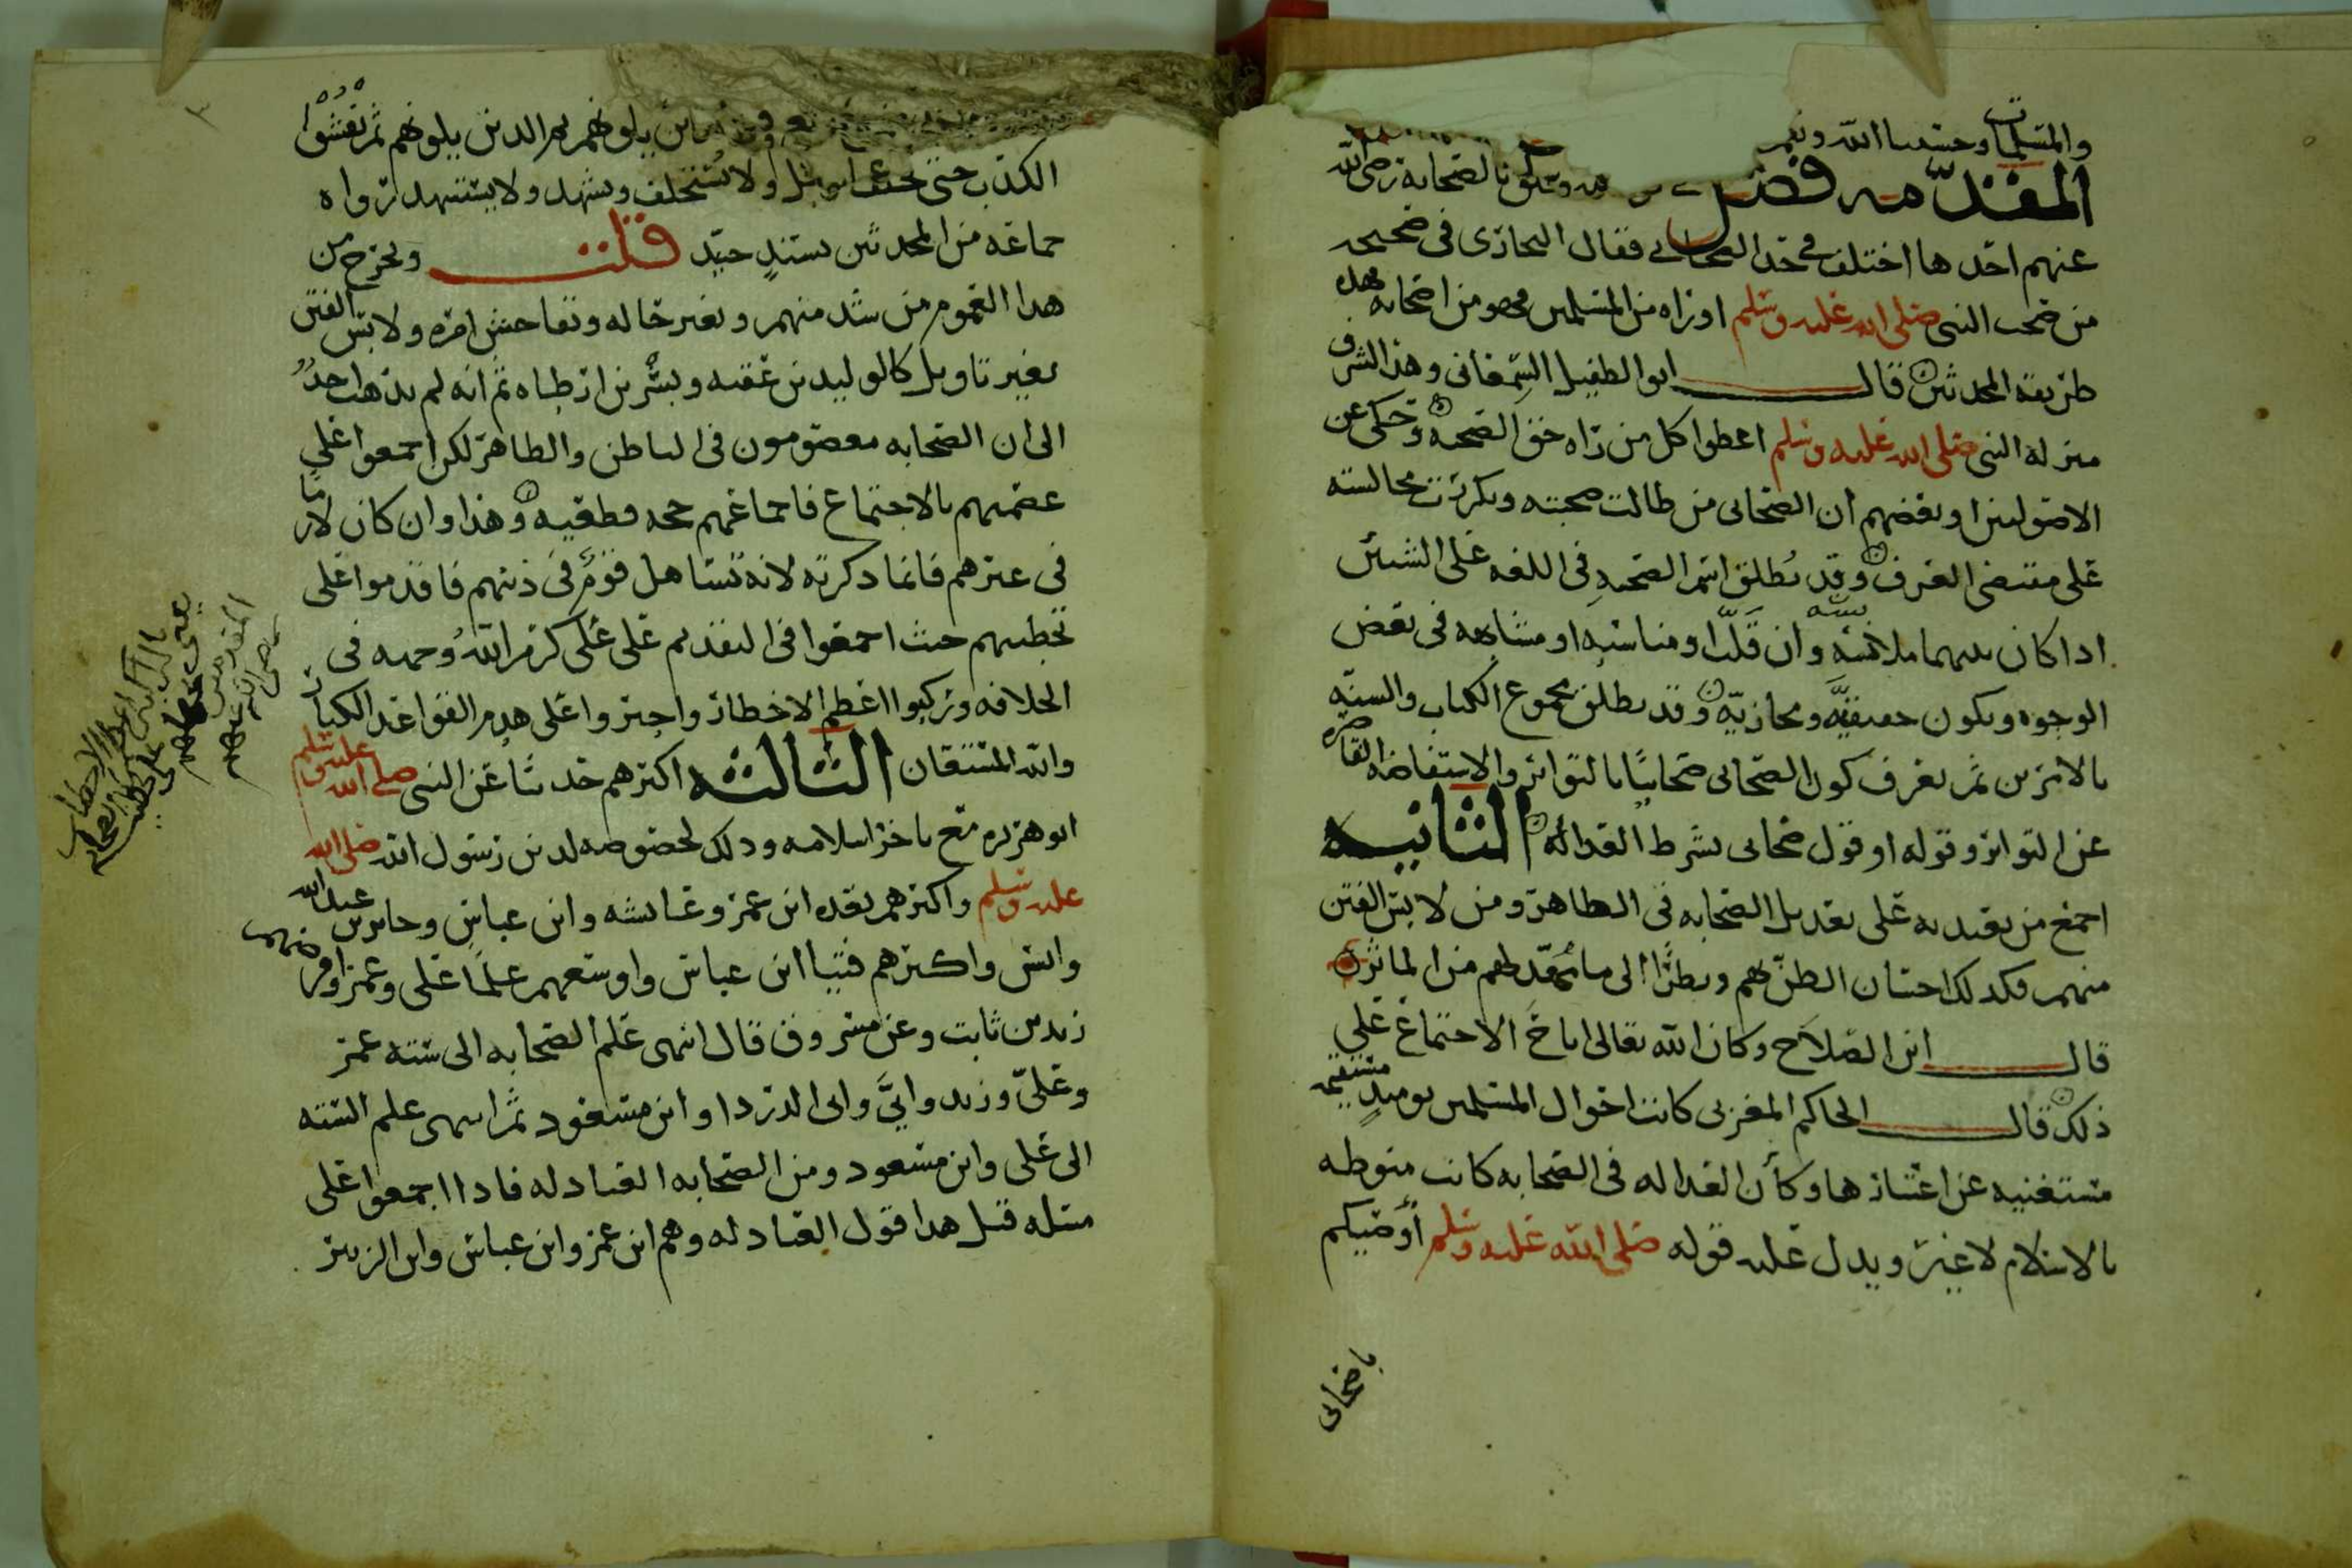 والمسلمات وحسبنا الله ونعم
المقدمه فصل وتتعلق بالصحابة رضي الله
عنهم احدها اختلف في حد الصحابي فقال البخاري في صحيحه
من صحب النبي صلى الله عليه وسلم او راه من المسلمين فهو من اصحابه وهذه
طريقة المحدثين قال ابو الطفيل السمعاني وهذا لشرف
منزلة النبي صلى الله عليه وسلم اعطوا كل من راه حق الصحبه وحكى عن
الاصوليين او بعضهم ان الصحابي من طالت صحبته وتكررت مجالسته
على مقتضى العرف وقد يطلق اسم الصحبه في اللغه على الشيئين
اذا كان بينهما ملابسه وان قلت او مناسبه او مشابهه في بعض
الوجوه ويكون حقيقيه ومجازيه وقد يطلق مجموع الكتاب والسنه
بالامرين ثم يعرف كون الصحابي صحابيا بالتواتر والاستفاضه القاصره
عن التواتر وقوله او قول صحابي بشرط العداله الثانيه
اجمع من يعتد به على تعديل الصحابه في الظاهر ومن لابس الفتن
منهم فكذلك احسان الظن بهم ونظرا الى ما تمهد لهم من الماثر
قال ابن الصلاح وكان الله تعالى اباح الاجتماع على
ذلك قال الحاكم المغربي كانت احوال المسلمين يوميذ مستقيمه
مستغنيه عن اعتبارها وكأن العداله في الصحابه كانت منوطه
بالاسلام لا غير ويدل عليه قوله صلى الله عليه وسلم أوصيكم
باصحابي
يلونهم ثم الذين يلونهم ثم تفشوا
الكذب حتى يحلف الرجل ولا يستحلف ويشهد ولا يستشهد رواه
جماعه من المحدثين بسند جيد قلت ويخرج من
هذا العموم من شذ منهم وتغير حاله وتفاحش امره ولابس الفتن
بغير تاويل كالوليد بن عقبه وبسر بن ارطاه ثم انه لم يذهب احد
الى ان الصحابه معصومون في الباطن والظاهر لكن اجمعوا على
عصمتهم بالاجتماع فاجماعهم حجه قطعيه وهذا وان كان لازما
في غيرهم فانما ذكرته لانه تساهل قوم في دينهم فاقدموا على
تخطيهم حيث اجمعوا في التقديم على علي كرم الله وجهه في
الخلافه وركبوا اعظم الاخطار واجتروا على هدم القواعد الكبار
والله المستعان الثالثه اكثرهم حديثا عن النبي صلى الله عليه وسلم
ابو هريره مع تاخر اسلامه وذلك لخصوصه لدين رسول الله صلى الله
عليه وسلم واكثرهم بعده ابن عمر وعايشه وابن عباس وجابر بن عبد الله
وانس واكثرهم فتيا ابن عباس واوسعهم علما علي وعمر وافرضهم
زيد بن ثابت وعن مسروق قال انتهى علم الصحابه الى سته عمر
وعلي وزيد وابي وابي الدردا وابن مسعود ثم انتهى علم السته
الى علي وابن مسعود ومن الصحابه العبادله فاذا اجمعوا على
مسله قيل هذا قول العبادله وهم ابن عمر وابن عباس وابن الزبير